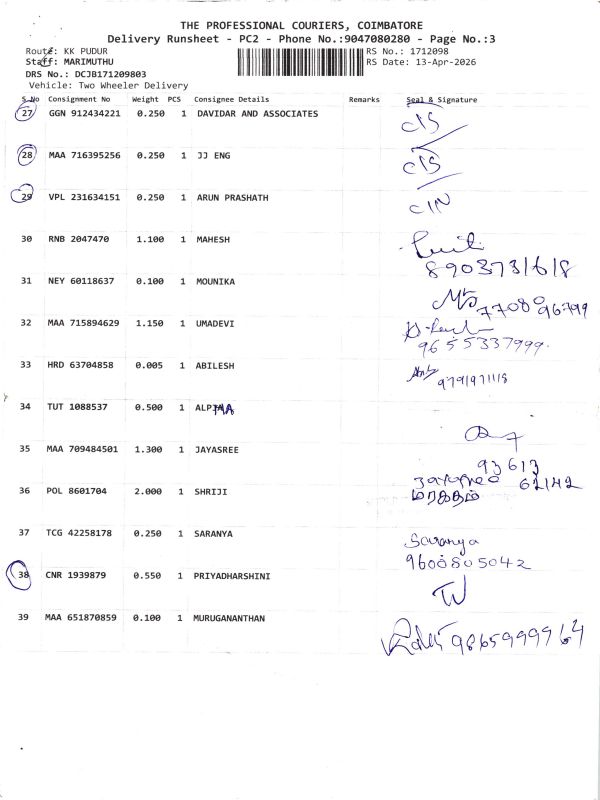 THE PROFESSIONAL COURIERS, COIMBATORE
Delivery Runsheet - PC2 - Phone No.:9047080280 - Page No.:3
Route: KK PUDUR
RS No.: 1712098
Staff: MARIMUTHU
RS Date: 13-Apr-2026
DRS No.: DCJB171209803
Vehicle: Two Wheeler Delivery
S.No Consignment No Weight PCS Consignee Details Remarks Seal & Signature
27 GGN 912434221 0.250 1 DAVIDAR AND ASSOCIATES
28 MAA 716395256 0.250 1 JJ ENG
29 VPL 231634151 0.250 1 ARUN PRASHATH
30 RNB 2047470 1.100 1 MAHESH
8903731618
31 NEY 60118637 0.100 1 MOUNIKA
77080 96799
32 MAA 715894629 1.150 1 UMADEVI
9655337999
33 HRD 63704858 0.005 1 ABILESH
9791971118
34 TUT 1088537 0.500 1 
35 MAA 709484501 1.300 1 JAYASREE
93613
62142
36 POL 8601704 2.000 1 SHRIJI
37 TCG 42258178 0.250 1 SARANYA
Saranya
9600805042
38 CNR 1939879 0.550 1 PRIYADHARSHINI
39 MAA 651870859 0.100 1 MURUGANANTHAN
9865999964